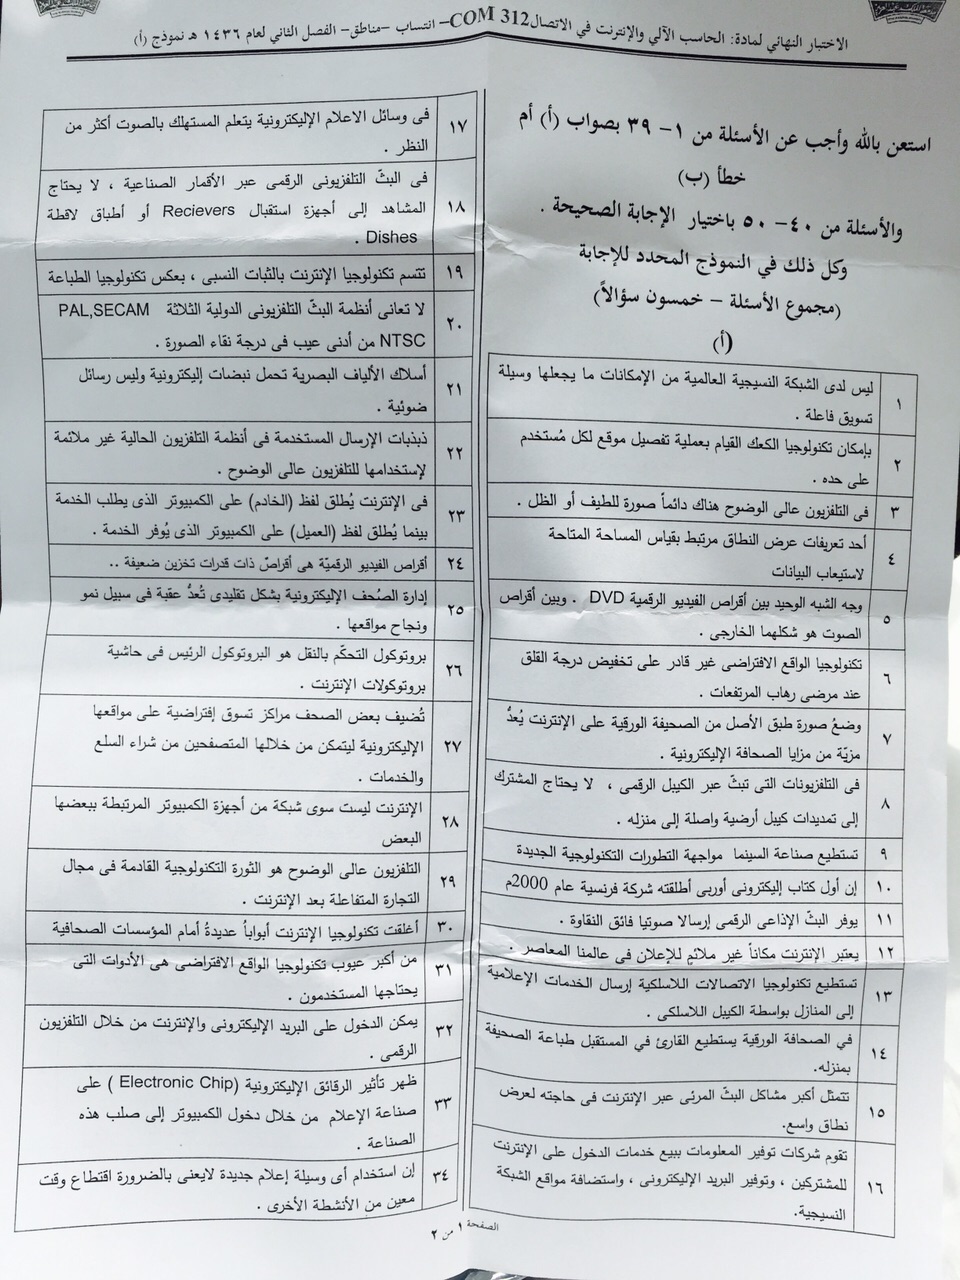 الاختبار النهائي لمادة: الحاسب الآلي والإنترنت في الاتصال COM 312– انتساب –مناطق– الفصل الثاني لعام ١٤٣٦ هـ نموذج (أ)
استعن بالله وأجب عن الأسئلة من ١– ٣٩ بصواب (أ) أم
خطأ (ب)
والأسئلة من ٤٠– ٥٠ باختيار الإجابة الصحيحة .
وكل ذلك في النموذج المحدد للإجابة
(مجموع الأسئلة – خمسون سؤالاً)
(أ)
١ ليس لدى الشبكة النسيجية العالمية من الإمكانات ما يجعلها وسيلة
تسويق فاعلة .
٢ بإمكان تكنولوجيا الكعك القيام بعملية تفصيل موقع لكل مُستخدم
على حده .
٣ فى التلفزيون عالى الوضوح هناك دائماً صورة للطيف أو الظل .
٤ أحد تعريفات عرض النطاق مرتبط بقياس المساحة المتاحة
لاستيعاب البيانات
٥ وجه الشبه الوحيد بين أقراص الفيديو الرقمية DVD . وبين أقراص
الصوت هو شكلهما الخارجى .
٦ تكنولوجيا الواقع الافتراضى غير قادر على تخفيض درجة القلق
عند مرضى رهاب المرتفعات .
٧ وضعُ صورة طبق الأصل من الصحيفة الورقية على الإنترنت يُعدُّ
مزيّة من مزايا الصحافة الإليكترونية .
٨ فى التلفزيونات التى تبثّ عبر الكيبل الرقمى ، لا يحتاج المشترك
إلى تمديدات كيبل أرضية واصلة إلى منزله .
٩ تستطيع صناعة السينما مواجهة التطورات التكنولوجية الجديدة
١٠ إن أول كتاب إليكترونى أوربى أطلقته شركة فرنسية عام 2000م
١١ يوفر البثّ الإذاعى الرقمى إرسالا صوتيا فائق النقاوة .
١٢ يعتبر الإنترنت مكاناً غير ملائمٍ للإعلان فى عالمنا المعاصر .
١٣ تستطيع تكنولوجيا الاتصالات اللاسلكية إرسال الخدمات الإعلامية
إلى المنازل بواسطة الكيبل اللاسلكى .
١٤ في الصحافة الورقية يستطيع القارئ في المستقبل طباعة الصحيفة
بمنزله.
١٥ تتمثل أكبر مشاكل البثّ المرئى عبر الإنترنت فى حاجته لعرض
نطاق واسع.
١٦ تقوم شركات توفير المعلومات ببيع خدمات الدخول على الإنترنت
للمشتركين ، وتوفير البريد الإليكترونى ، واستضافة مواقع الشبكة
النسيجية.
١٧ فى وسائل الاعلام الإليكترونية يتعلم المستهلك بالصوت أكثر من
النظر .
١٨ فى البثّ التلفزيونى الرقمى عبر الأقمار الصناعية ، لا يحتاج
المشاهد إلى أجهزة استقبال Recievers أو أطباق لاقطة
Dishes .
١٩ تتسم تكنولوجيا الإنترنت بالثبات النسبى ، بعكس تكنولوجيا الطباعة
٢٠ لا تعانى أنظمة البثّ التلفزيونى الدولية الثلاثة PAL,SECAM
NTSC من أدنى عيب فى درجة نقاء الصورة .
٢١ أسلاك الألياف البصرية تحمل نبضات إليكترونية وليس رسائل
ضوئية .
٢٢ ذبذبات الإرسال المستخدمة فى أنظمة التلفزيون الحالية غير ملائمة
لإستخدامها للتلفزيون عالى الوضوح .
٢٣ فى الإنترنت يُطلق لفظ (الخادم) على الكمبيوتر الذى يطلب الخدمة
بينما يُطلق لفظ (العميل) على الكمبيوتر الذى يُوفر الخدمة .
٢٤ أقراص الفيديو الرقميّة هى أقراصٌ ذات قدرات تخزين ضعيفة ..
٢٥ إدارة الصُحف الإليكترونية بشكل تقليدى تُعدُّ عقبة فى سبيل نمو
ونجاح مواقعها .
٢٦ بروتوكول التحكّم بالنقل هو البروتوكول الرئيس فى حاشية
بروتوكولات الإنترنت .
٢٧ تُضيف بعض الصحف مراكز تسوق إفتراضية على مواقعها
الإليكترونية ليتمكن من خلالها المتصفحين من شراء السلع
والخدمات .
٢٨ الإنترنت ليست سوى شبكة من أجهزة الكمبيوتر المرتبطة ببعضها
البعض
٢٩ التلفزيون عالى الوضوح هو الثورة التكنولوجية القادمة فى مجال
التجارة المتفاعلة بعد الإنترنت .
٣٠ أغلقت تكنولوجيا الإنترنت أبواباً عديدةُ أمام المؤسسات الصحافية
٣١ من أكبر عيوب تكنولوجيا الواقع الافتراضى هى الأدوات التى
يحتاجها المستخدمون .
٣٢ يمكن الدخول على البريد الإليكترونى والإنترنت من خلال التلفزيون
الرقمى .
٣٣ ظهر تأثير الرقائق الإليكترونية (Electronic Chip ) على
صناعة الإعلام من خلال دخول الكمبيوتر إلى صلب هذه
الصناعة .
٣٤ إن استخدام أى وسيلة إعلام جديدة لايعنى بالضرورة اقتطاع وقت
معين من الأنشطة الأخرى .
الصفحة ١ من ٢